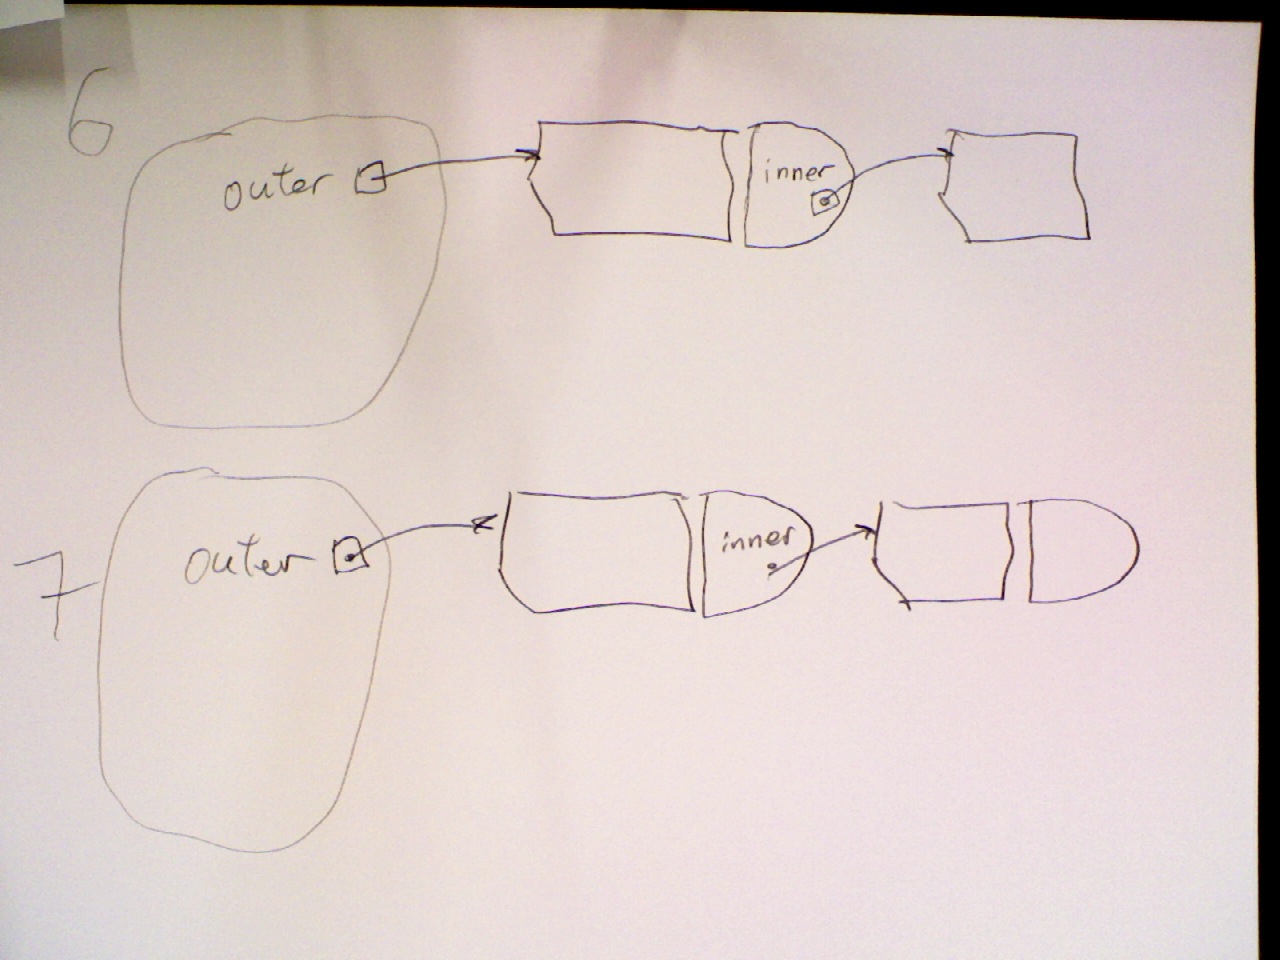 6
outer
inner
7
outer
inner